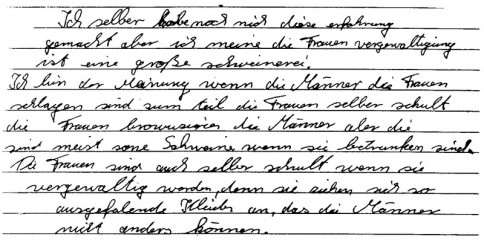 Ich selber habe noch nich diese erfahrung
gemacht aber ich meine die Frauen vergewaltigung
ist eine große schweinerei.
Ich bin der Meinung wenn die Männer die Frauen
schlagen sind zum teil die Frauen selber schult
die Frauen browusieren die Männer aber die
sind meist sone Schweine wenn sie betrunken sind.
Die Frauen sind auch selber schult wenn sie
vergewaltig worden, denn sie ziehen sich so
ausgefalende Kleider an, das die Männer
nicht anders können.